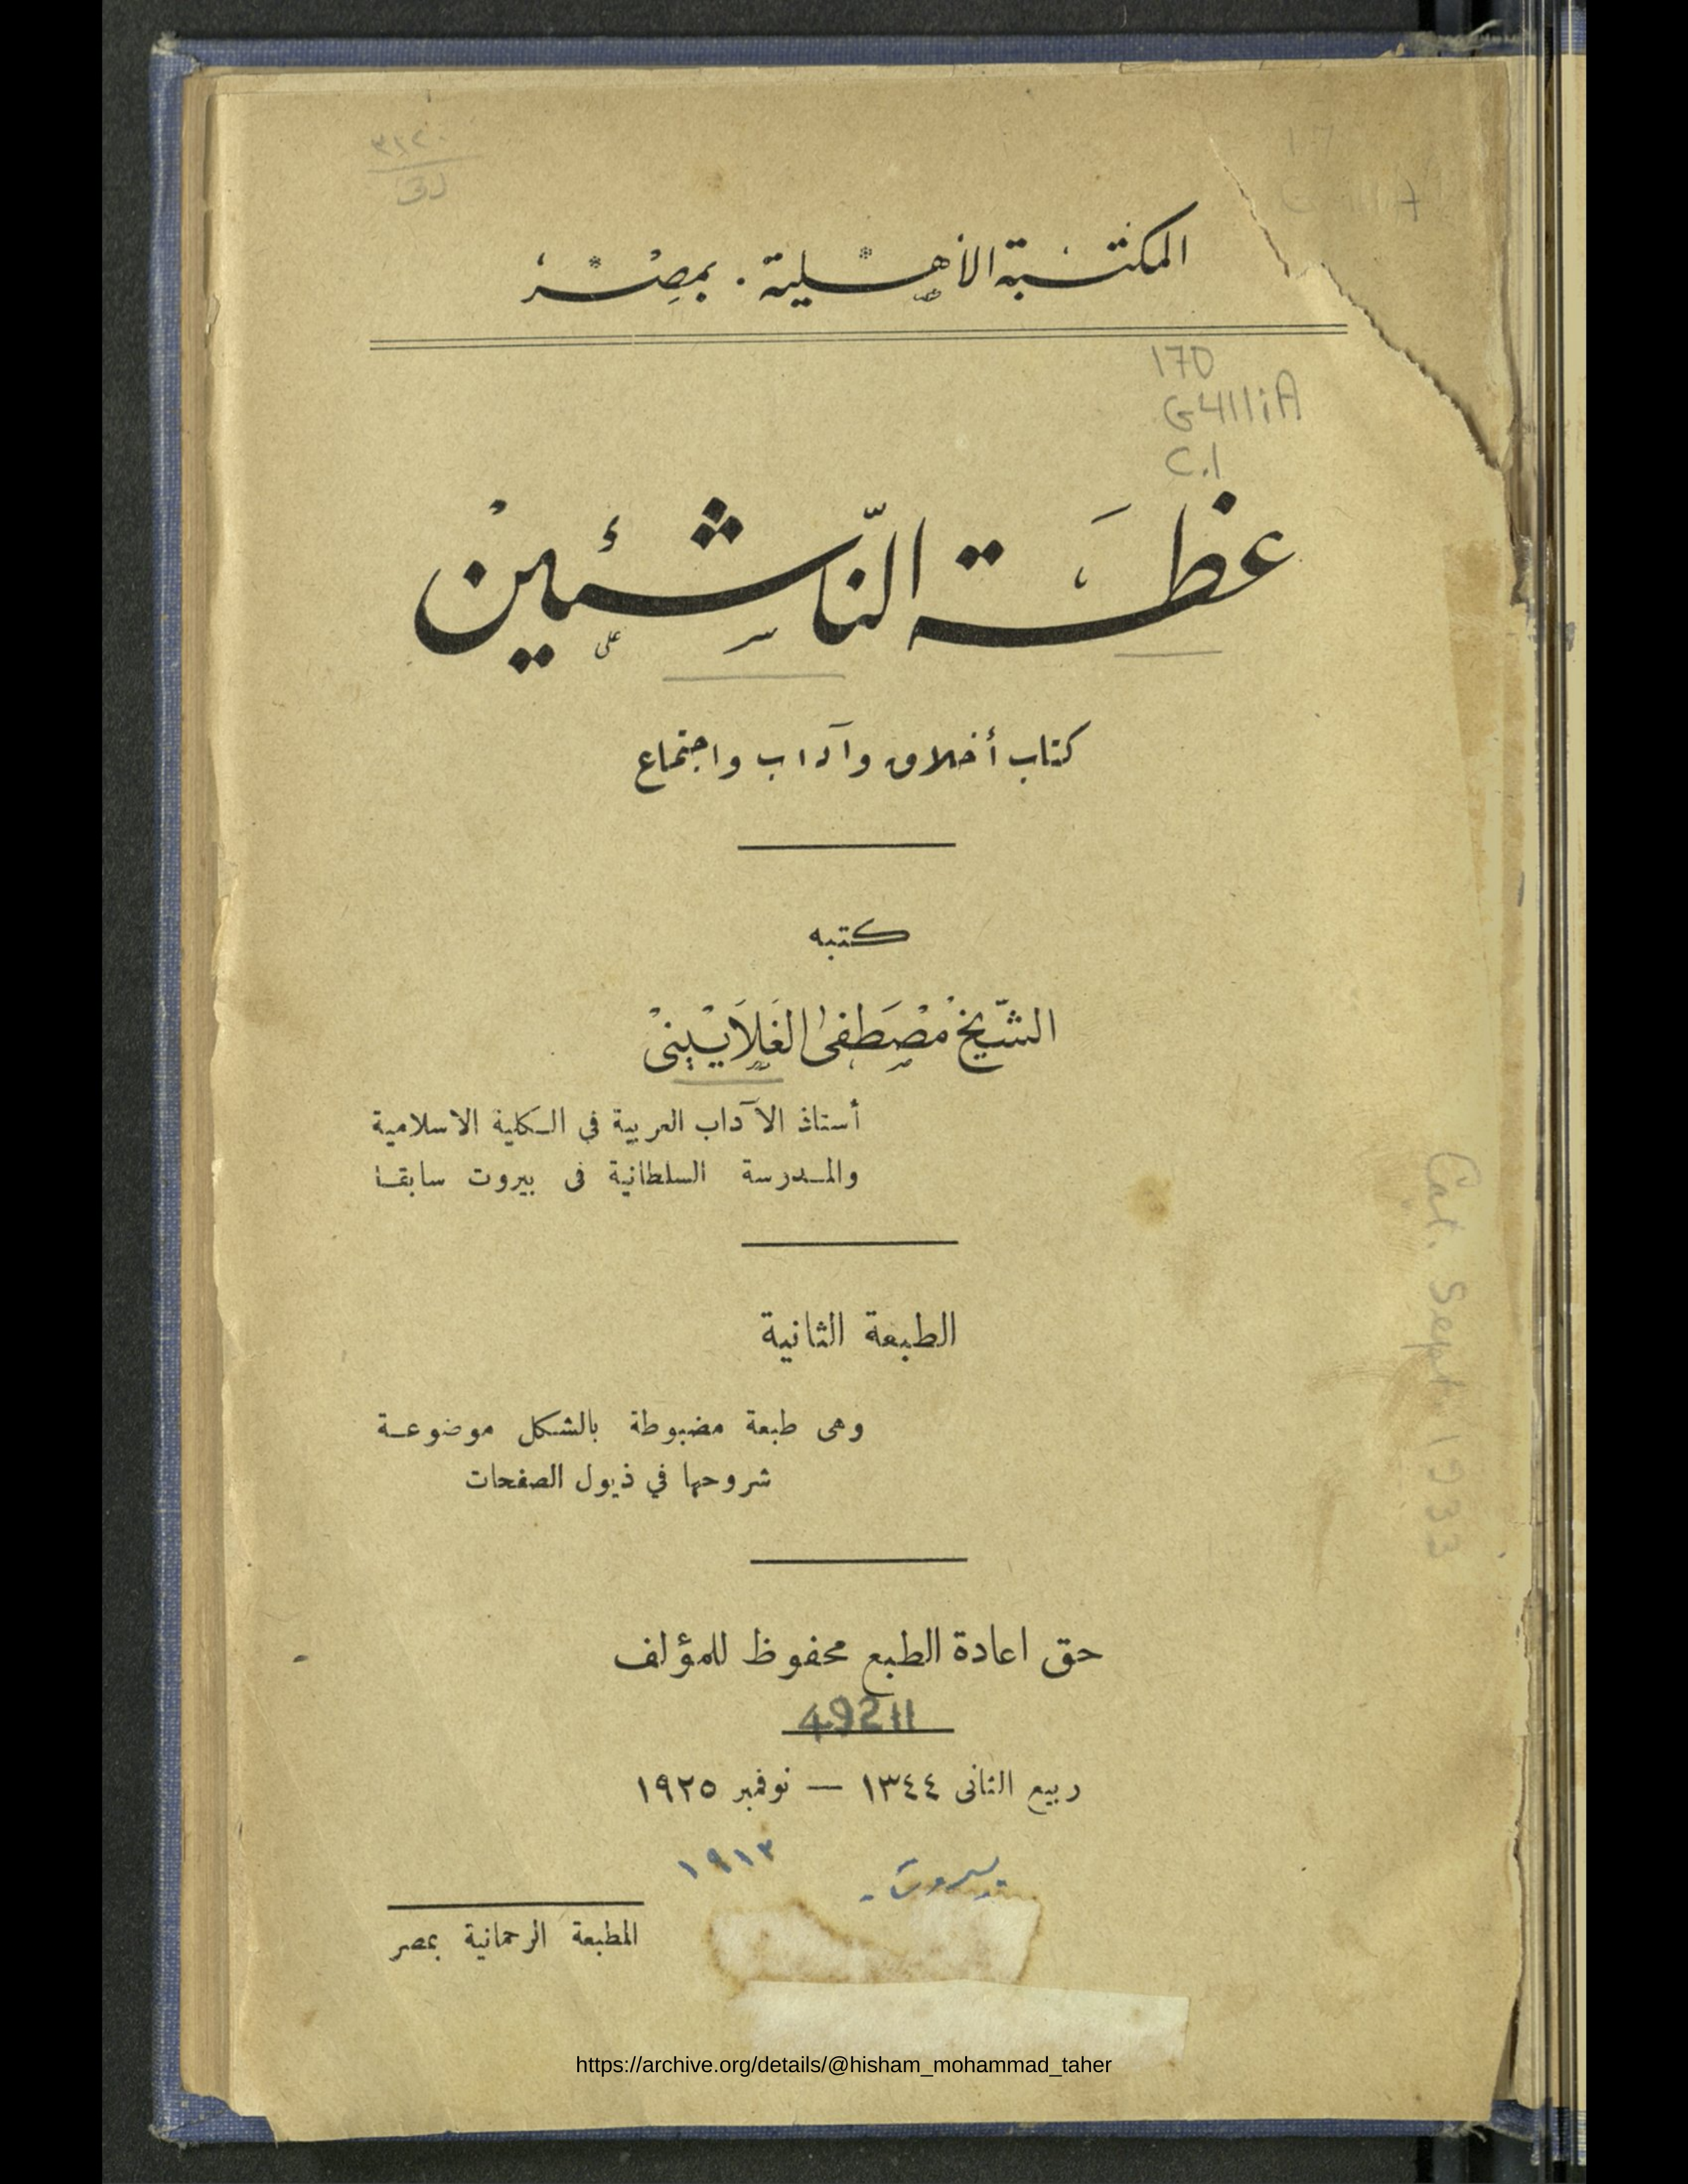 المكتبة الأهلية . بمصر
170
G411iA
C.1
عظة الناشئين
كتاب أخلاق وآداب واجتماع
كتبه
الشيخ مصطفى الغلاييني
أستاذ الآداب العربية في الكلية الاسلامية
والمدرسة السلطانية فى بيروت سابقا
الطبعة الثانية
وهى طبعة مضبوطة بالشكل موضوعة
شروحها في ذيول الصفحات
حق اعادة الطبع محفوظ للمؤلف
49211
ربيع الثانى ١٣٤٤ — نوفمبر ١٩٢٥
بيروت - ١٩١٣
المطبعة الرحمانية بمصر
Cat. Sept. 1933
https://archive.org/details/@hisham_mohammad_taher